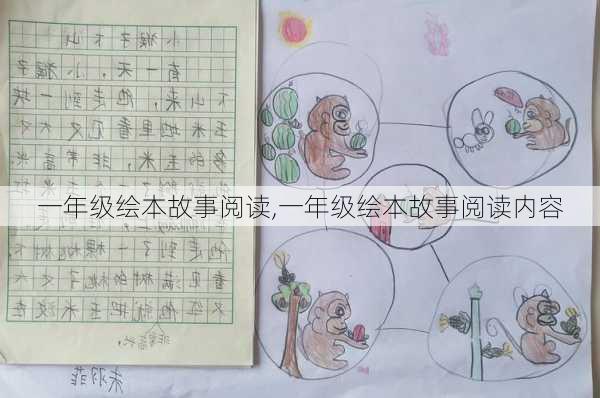 小猴子下山
有一天，小猴子
下山来，他走到一块
玉米地里看见又大又
多的玉米，非常高兴
一年级绘本故事阅读,一年级绘本故事阅读内容
他走到了一棵桃树下，
看见满树的桃子又大
又红他就把玉米
非常高兴，
朱羽菲